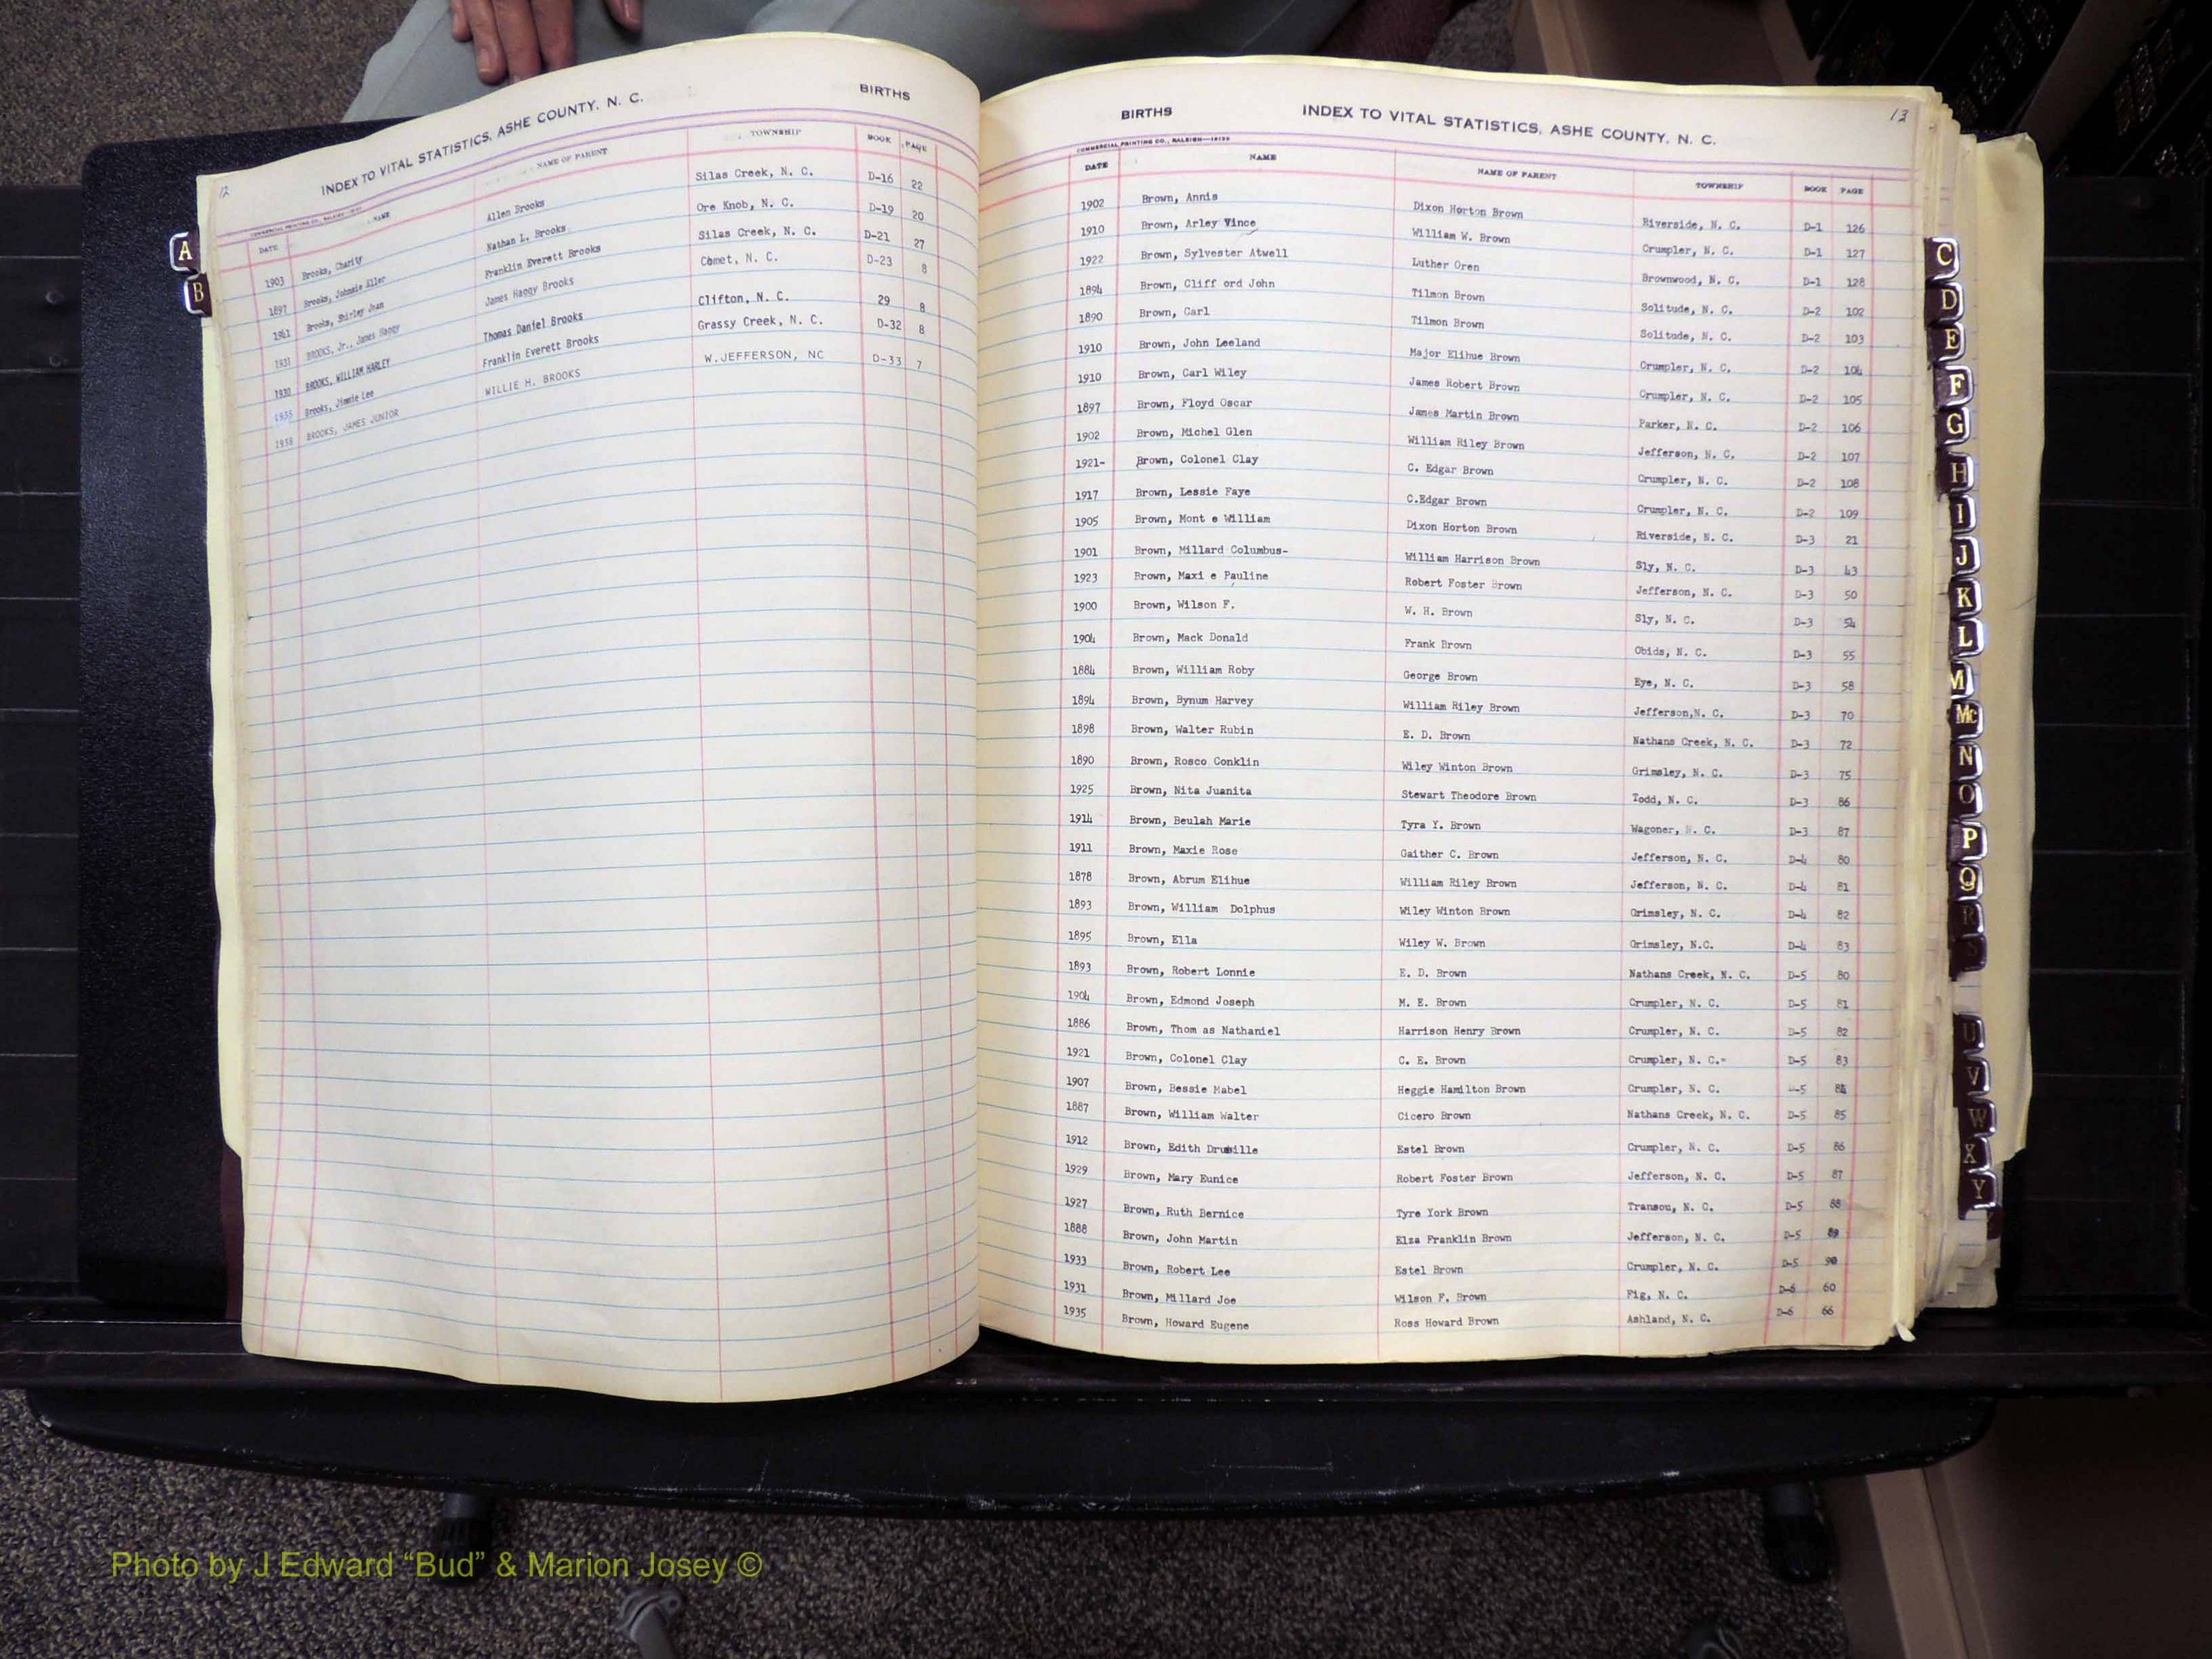 12
INDEX TO VITAL STATISTICS, ASHE COUNTY, N. C. BIRTHS
DATE NAME NAME OF PARENT TOWNSHIP BOOK PAGE
1903 Brooks, Charity Allen Brooks Silas Creek, N. C. D-16 22
1897 Brooks, Johnnie Eller Nathan L. Brooks Ore Knob, N. C. D-19 20
1941 Brooks, Shirley Jean Franklin Everett Brooks Silas Creek, N. C. D-21 27
1931 BROOKS, Jr., James Haggy James Haggy Brooks Comet, N. C. D-23 8
1930 BROOKS, WILLIAM HARLEY Thomas Daniel Brooks Clifton, N. C. 29 8
1935 Brooks, Jimmie Lee Franklin Everett Brooks Grassy Creek, N. C. D-32 8
1938 BROOKS, JAMES JUNIOR WILLIE H. BROOKS W.JEFFERSON, NC D-33 7
13
BIRTHS INDEX TO VITAL STATISTICS, ASHE COUNTY, N. C.
COMMERCIAL PRINTING CO., RALEIGH
DATE NAME NAME OF PARENT TOWNSHIP BOOK PAGE
1902 Brown, Annis Dixon Horton Brown Riverside, N. C. D-1 126
1910 Brown, Arley Vince William W. Brown Crumpler, N. C. D-1 127
1922 Brown, Sylvester Atwell Luther Oren Brownwood, N. C. D-1 128
1894 Brown, Cliff ord John Tilmon Brown Solitude, N. C. D-2 102
1890 Brown, Carl Tilmon Brown Solitude, N. C. D-2 103
1910 Brown, John Leeland Major Elihue Brown Crumpler, N. C. D-2 104
1910 Brown, Carl Wiley James Robert Brown Crumpler, N. C. D-2 105
1897 Brown, Floyd Oscar James Martin Brown Parker, N. C. D-2 106
1902 Brown, Michel Glen William Riley Brown Jefferson, N. C. D-2 107
1921- Brown, Colonel Clay C. Edgar Brown Crumpler, N. C. D-2 108
1917 Brown, Lessie Faye C.Edgar Brown Crumpler, N. C. D-2 109
1905 Brown, Mont e William Dixon Horton Brown Riverside, N. C. D-3 21
1901 Brown, Millard Columbus- William Harrison Brown Sly, N. C. D-3 43
1923 Brown, Maxi e Pauline Robert Foster Brown Jefferson, N. C. D-3 50
1900 Brown, Wilson F. W. H. Brown Sly, N. C. D-3 54
1904 Brown, Mack Donald Frank Brown Obids, N. C. D-3 55
1884 Brown, William Roby George Brown Eye, N. C. D-3 58
1894 Brown, Bynum Harvey William Riley Brown Jefferson,N. C. D-3 70
1898 Brown, Walter Rubin E. D. Brown Nathans Creek, N. C. D-3 72
1890 Brown, Rosco Conklin Wiley Winton Brown Grimsley, N. C. D-3 75
1925 Brown, Nita Juanita Stewart Theodore Brown Todd, N. C. D-3 86
1914 Brown, Beulah Marie Tyra Y. Brown Wagoner, N. C. D-3 87
1911 Brown, Maxie Rose Gaither C. Brown Jefferson, N. C. D-4 80
1878 Brown, Abrum Elihue William Riley Brown Jefferson, N. C. D-4 81
1893 Brown, William Dolphus Wiley Winton Brown Grimsley, N. C. D-4 82
1895 Brown, Ella Wiley W. Brown Grimsley, N.C. D-4 83
1893 Brown, Robert Lonnie E. D. Brown Nathans Creek, N. C. D-5 80
1904 Brown, Edmond Joseph M. E. Brown Crumpler, N. C. D-5 81
1886 Brown, Thom as Nathaniel Harrison Henry Brown Crumpler, N. C. D-5 82
1921 Brown, Colonel Clay C. E. Brown Crumpler, N. C.- D-5 83
1907 Brown, Bessie Mabel Heggie Hamilton Brown Crumpler, N. C. D-5 84
1887 Brown, William Walter Cicero Brown Nathans Creek, N. C. D-5 85
1912 Brown, Edith Drusille Estel Brown Crumpler, N. C. D-5 86
1929 Brown, Mary Eunice Robert Foster Brown Jefferson, N. C. D-5 87
1927 Brown, Ruth Bernice Tyre York Brown Transou, N. C. D-5 88
1888 Brown, John Martin Elza Franklin Brown Jefferson, N. C. D-5 89
1933 Brown, Robert Lee Estel Brown Crumpler, N. C. D-5 90
1931 Brown, Millard Joe Wilson F. Brown Fig, N. C. D-6 60
1935 Brown, Howard Eugene Ross Howard Brown Ashland, N. C. D-6 66
A
B
C
D
E
F
G
H
I
J
K
L
M
Mc
N
O
P
Q
R
U
V
W
X
Y
Photo by J Edward “Bud” & Marion Josey ©